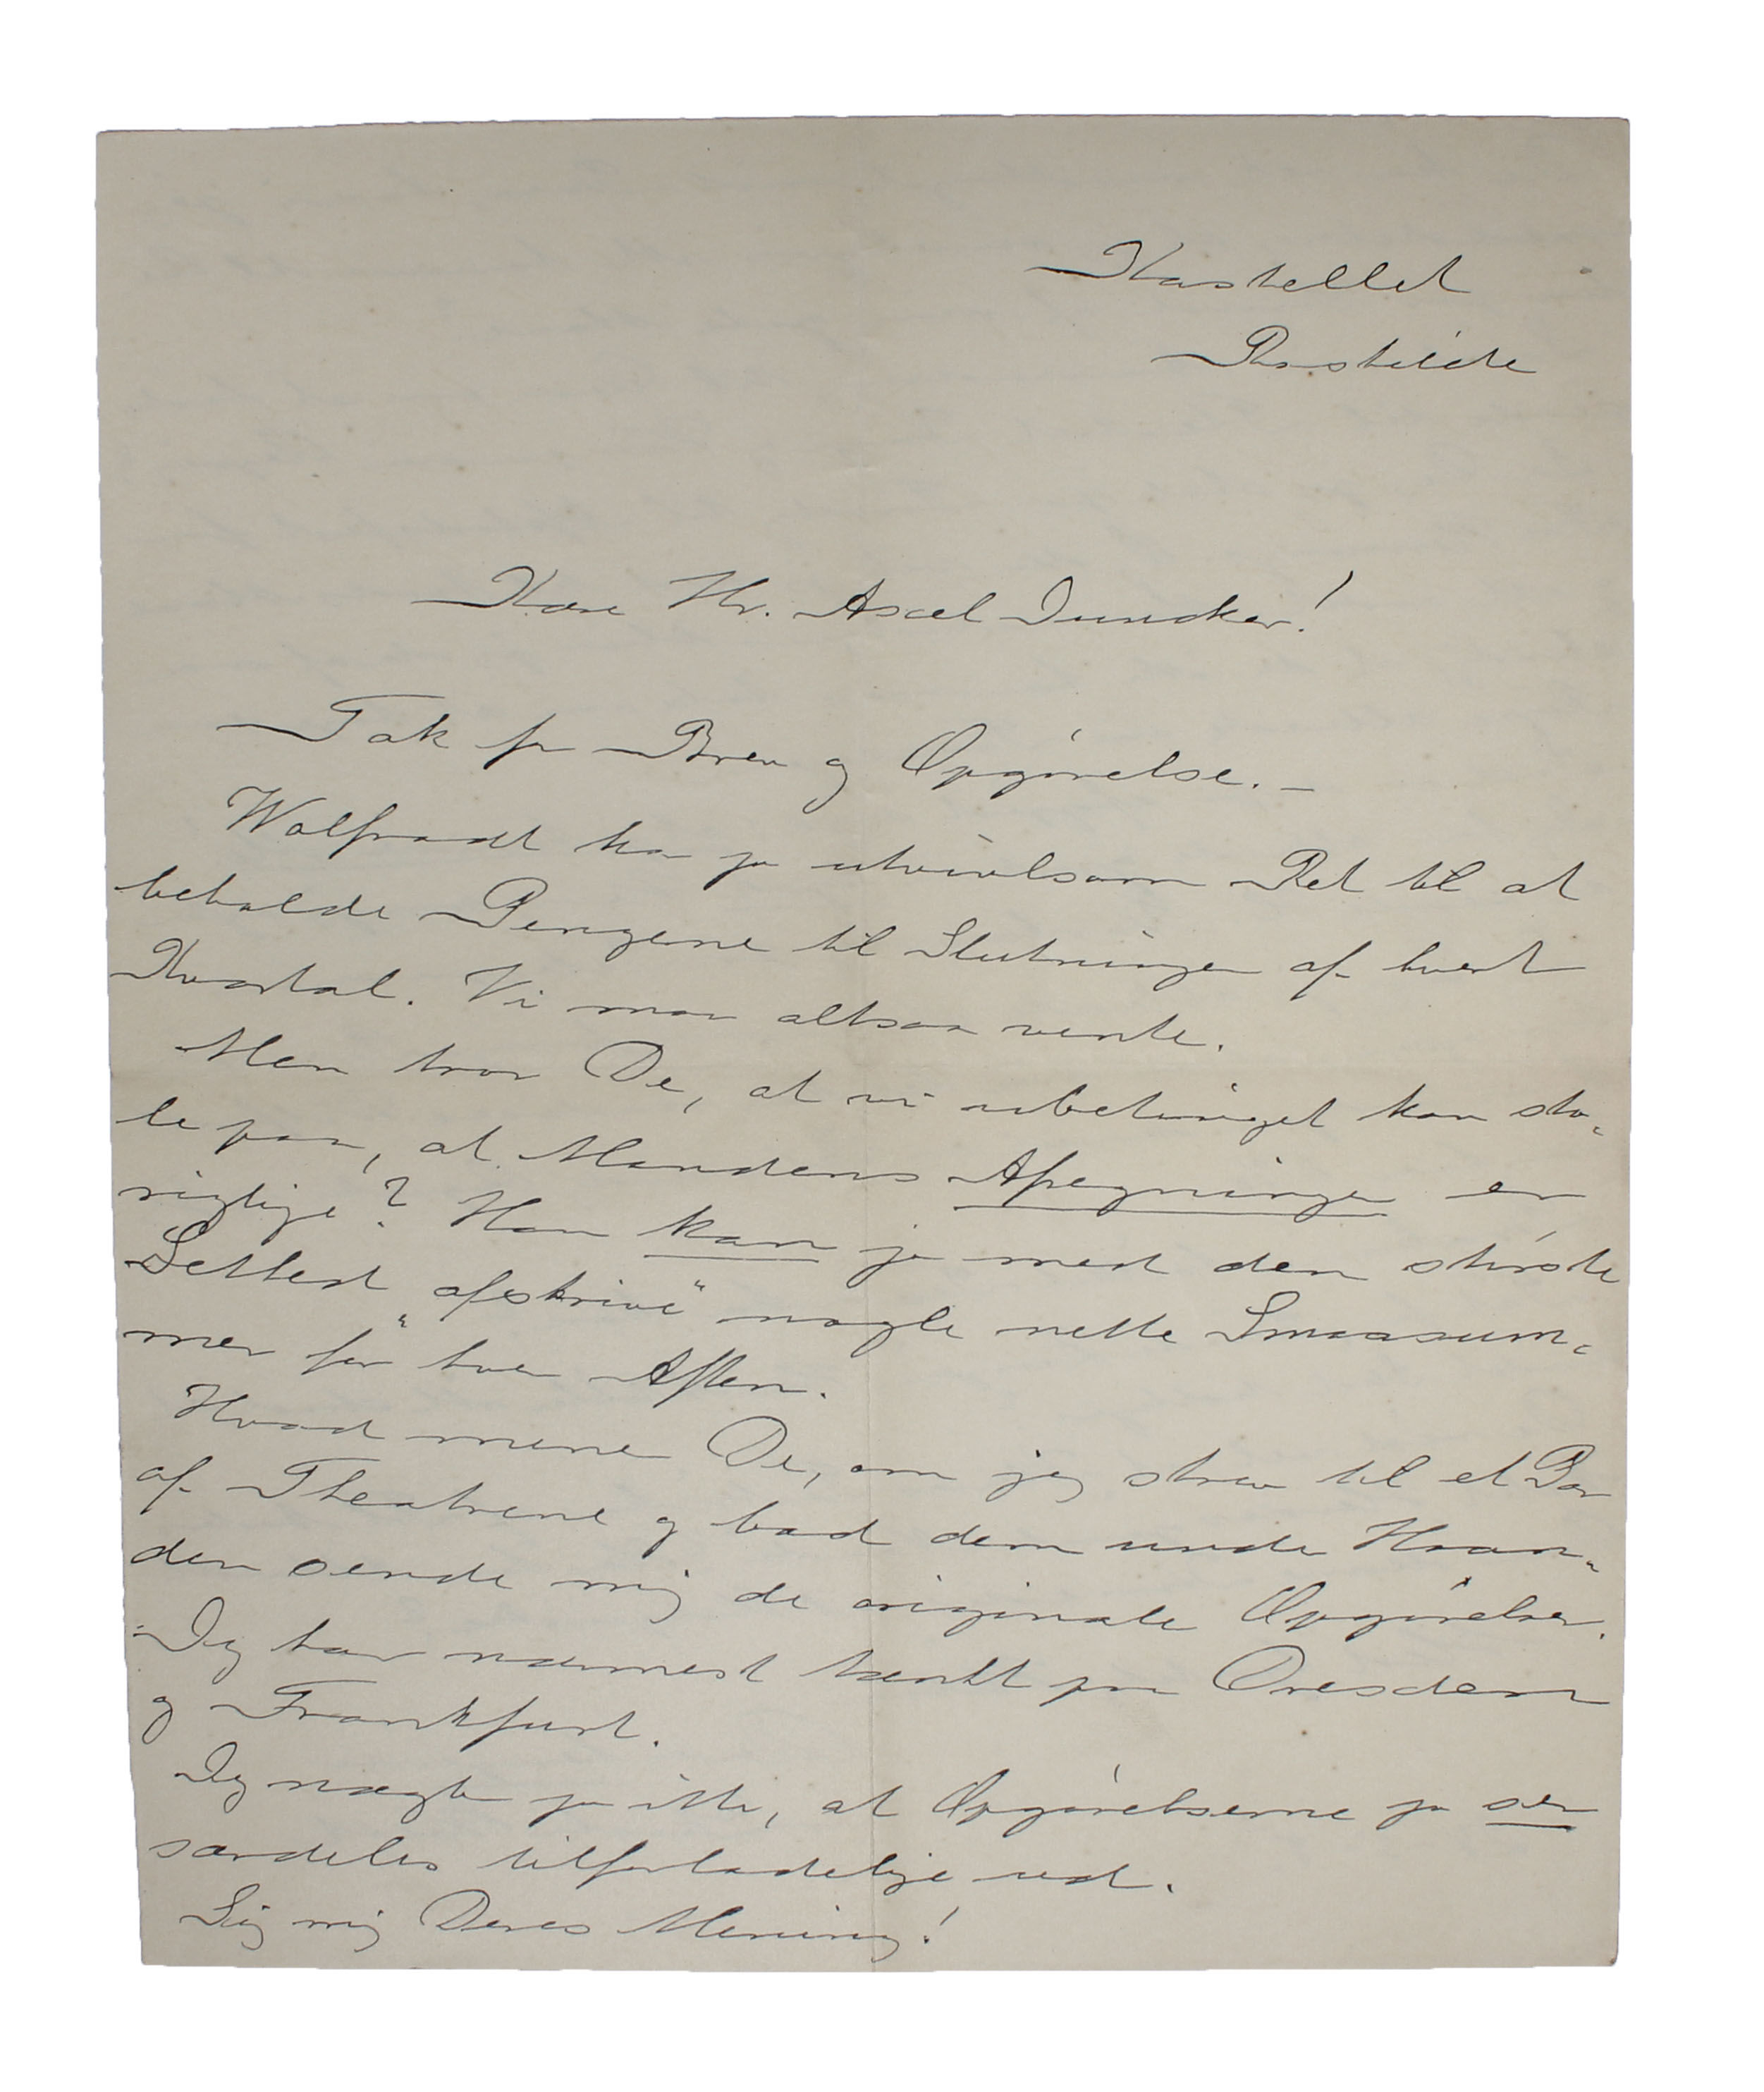 Kastellet
Roskilde
Kære Hr. Axel Juncker!
Tak for Brev og Opgørelse. –
Wolfradt har jo utvivlsom Ret til at
beholde Pengene til Slutningen af hvert
Kvartal. Vi maa altsaa vente.
Men tror De, at vi ubetinget kan sto-
le paa, at Mandens Afregninger er
rigtige? Han kan jo med den største
Lethed "afskrive" nogle nette Smaasum-
mer for hver Aften.
Hvad mener De, om jeg skrev til et Par
af Theatrene og bad dem under Haan-
den sende mig de originale Opgørelser.
Jeg har nærmest tænkt paa Dresden
og Frankfurt.
Jeg nægter jo ikke, at Opgørelserne jo ser
særdeles tilforladelige ud.
Sig mig Deres Mening!